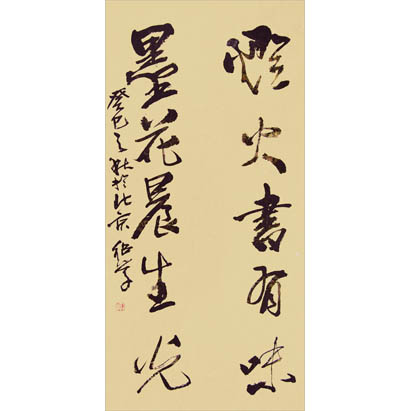 燈火書有味
墨花晨生光
癸巳之秋於北京